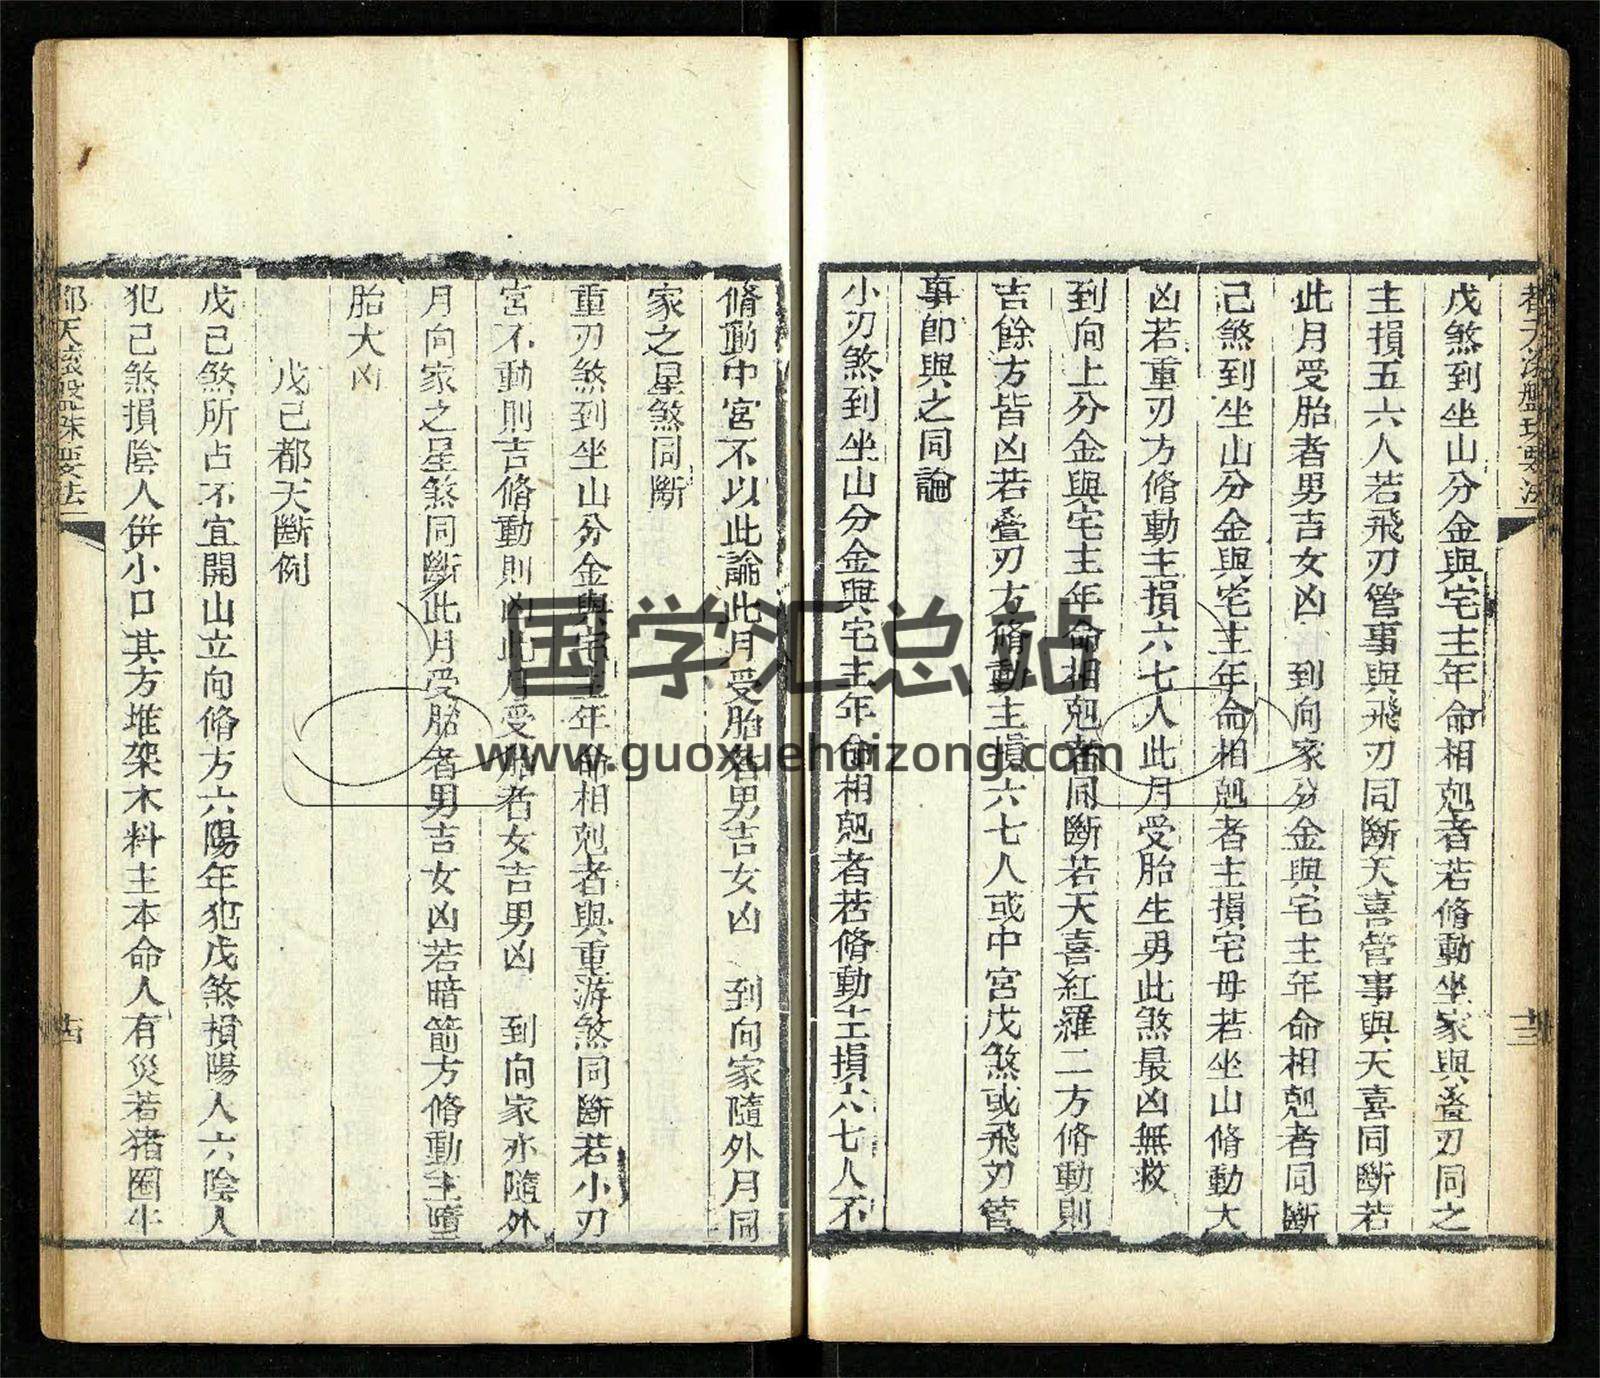 都天滚盤珠要法
十三
戊煞到坐山分金與宅主年命相剋者若脩動坐家與叠刃同之
主損五六人若飛刃管事與飛刃同斷天喜管事與天喜同斷若
此月受胎者男吉女凶 到向家分金與宅主年命相剋者同斷
己煞到坐山分金與宅主年命相剋者主損宅母若坐山脩動大
凶若重刃方脩動主損六七人此月受胎生男此煞最凶無救
到向上分金與宅主年命相剋者同斷若天喜紅羅二方脩動則
吉餘方皆凶若叠刃方脩動主損六七人或中宮戊煞或飛刃管
事卽與之同論
小刃煞到坐山分金與宅主年命相剋者若脩動主損六七人不
脩動中宮不以此論此月受胎者男吉女凶 到向家隨外月同
家之星煞同斷
重刃煞到坐山分金與宅主年命相剋者與重游煞同斷若小刃
宮不動則吉脩動則凶此月受胎者女吉男凶 到向家亦隨外
月向家之星煞同斷此月受胎者男吉女凶若暗箭方脩動主墮
胎大凶
戊己都天斷例
戊己煞所占不宜開山立向脩方六陽年犯戊煞損陽人六陰人
犯己煞損陰人併小口其方堆架木料主本命人有災若猪圈牛
都天滚盤珠要法
十四
国学汇总站
www.guoxuehuizong.com